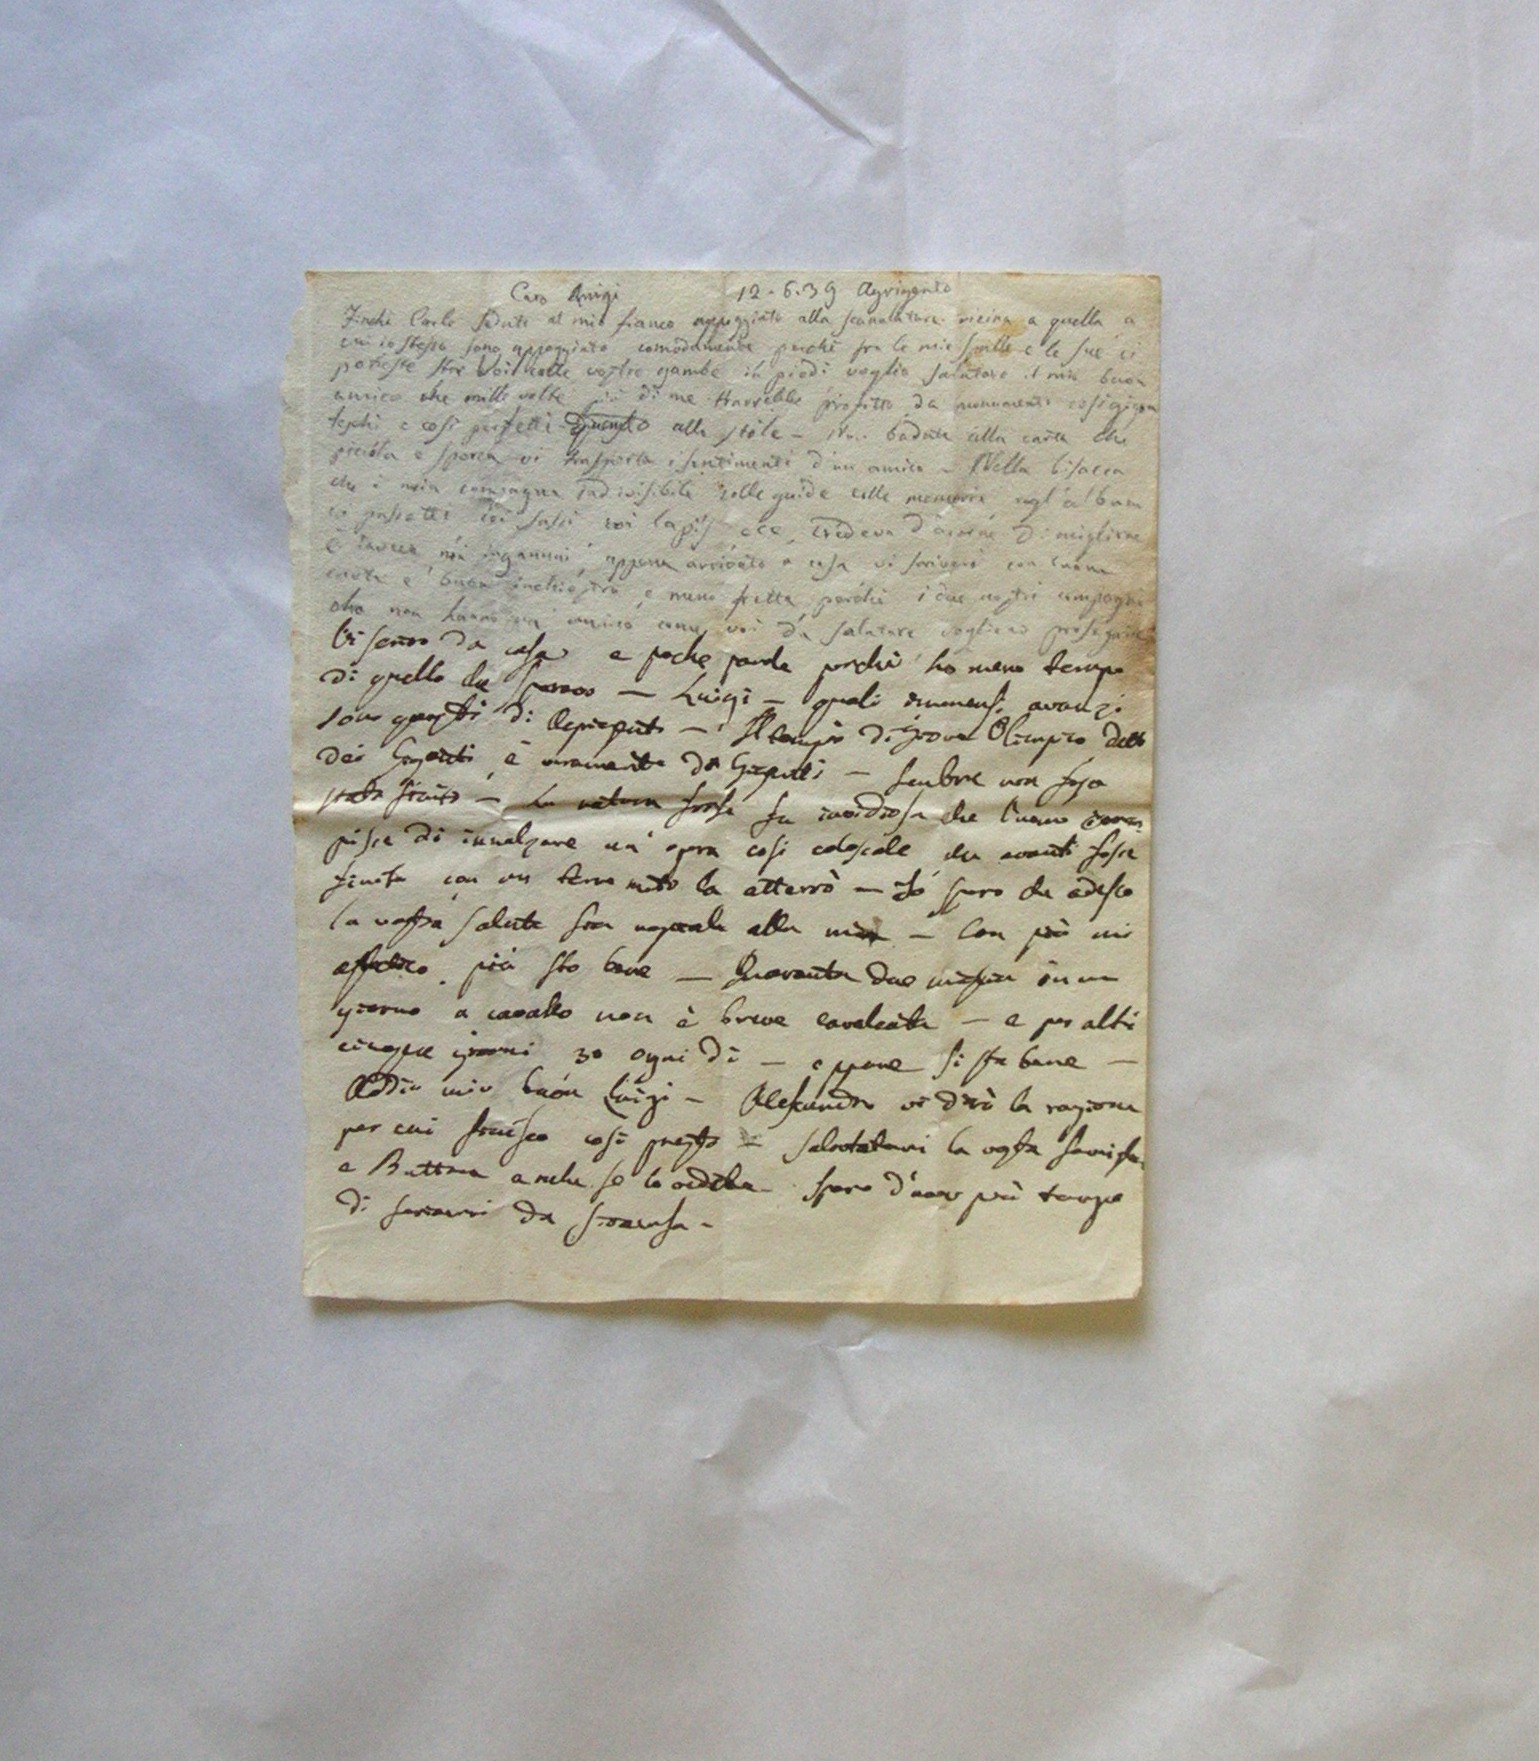 Caro Luigi 12-6.39 Agrigento
Finché Carlo seduto al mio fianco appoggiato alla scanalatura vicina a quella a
cui io stesso sono appoggiato comodamente perché fra le mie spalle e le sue ci
potreste star Voi colle vostre gambe in piedi voglio salutare il mio buon
amico che mille volte più di me trarrebbe profitto da monumenti così gigan
teschi e così perfetti quanto allo stile - Non badate alla carta che
piccola e sporca vi trasporta i sentimenti d'un amico - Nella bisacca
che è mia compagna indivisibile colle guide colle memorie cogl'album
coi sassi coi lapis ecc, credeva d'averne di migliore
e invece m'ingannai, appena arrivato a casa vi scriverò con buona
carta e buon inchiostro, e meno fretta, perché i due nostri compagni
che non hanno un amico come voi da salutare vogliono proseguire
Vi scrivo da casa e poche parole perché ho meno tempo
di quello che sperava - Luigi - quali immensi avanzi
sono questi di Agrigento - Il tempio di Giove Olimpico detto
dei Giganti è veramente da Giganti - sembra non fosse
stato finito - La natura forse fu invidiosa che l'uomo
di innalzare un'opera così colossale che avanti fosse
finita con un terremoto la atterrò - Io spero che adesso
la vostra salute sia uguale alla mia - Con più mi
affatico più sto bene - Quaranta due miglia in un
giorno a cavallo non è breve cavalcata - e per altri
cinque giorni 30 ogni dì - eppure si sta bene -
Addio mio buon Luigi - Alessandro vi dirà la ragione
per cui finisco così presto - salutatemi la vostra famiglia
e anche se lo vedete - Spero d'aver più tempo
di scrivervi da Siracusa -